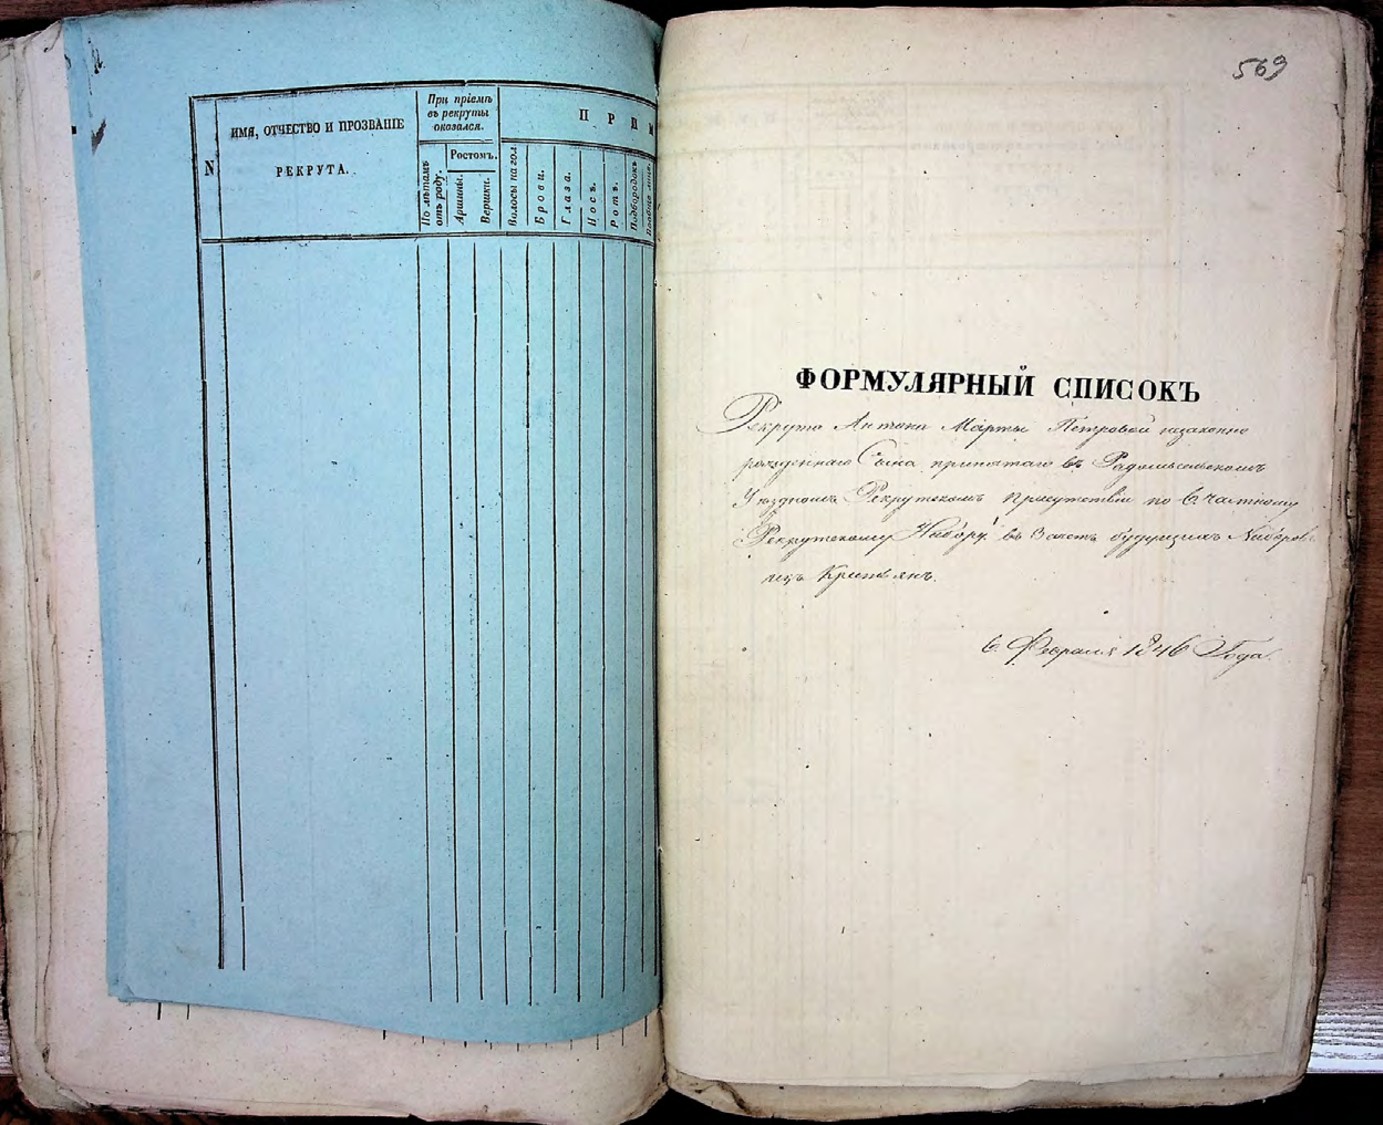 N
ИМЯ, ОТЧЕСТВО И ПРОЗВАНІЕ
РЕКРУТА.
При пріемѣ
въ рекруты
оказался.
По лѣтамъ
отъ роду.
Ростомъ.
Аршины.
Вершки.
П Р И М
Волосы на гол.
Брови.
Глаза.
Носъ.
Ротъ.
Подбородокъ
Вообще лице.
569
ФОРМУЛЯРНЫЙ СПИСОКЪ
Рекрута Антона Марты Петровой
рожденнаго Сына принятаго въ Радомысльскомъ
Уѣздномъ Рекрутскомъ Присутствіи по 6. частному
Рекрутскому Набору въ Зачетъ будущихъ Наборовъ
изъ
6. Февраля 1846 Года.